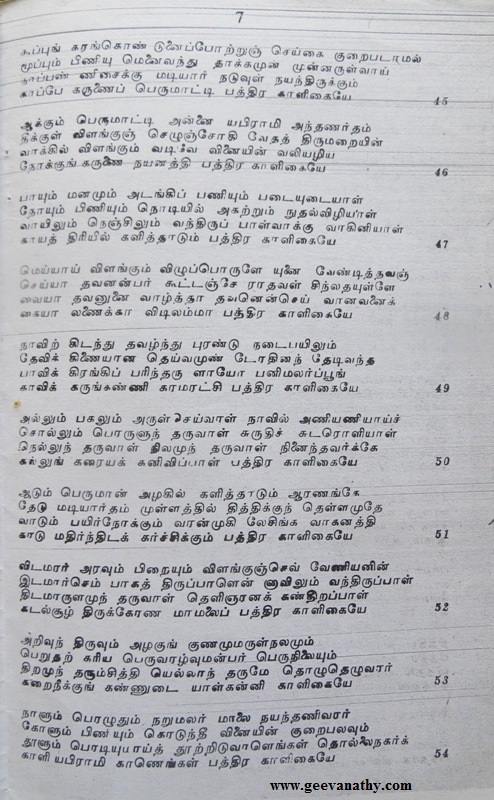 7
கூப்புங் கரங்கொண் டுனைப்போற்றுஞ் செய்கை குறைபடாமல்
மூப்பும் பிணியு மெனைவந்து தாக்கமுன் முன்னருள்வாய்
ணிசைக்கு மடியார் நடுவுள் நயந்திருக்கும்
காப்பே கருணைப் பெருமாட்டி பத்திர காளிகையே 45
ஆக்கும் பெருமாட்டி அன்னை யபிராமி அந்தணர்தம்
திக்குள் விளங்குஞ் செழுஞ்சோதி வேதத் திருமறையின்
வாக்கில் விளங்கும் வடிவே வினையின் வலியழிய
நோக்குங்கருணை நயனத்தி பத்திர காளிகையே 46
பாயும் மனமும் அடங்கிப் பணியும் படையுடையாள்
நோயும் பிணியும் நொடியில் அகற்றும் நுதல்விழியாள்
வாயிலும் நெஞ்சிலும் வந்திருப் பாள்வாக்கு வாகினியாள்
காயத் திரியில் களித்தாடும் பத்திர காளிகையே 47
மெய்யாய் விளங்கும் விழுப்பொருளே யுனை வேண்டித்தவஞ்
செய்யா தவனன்பர் கூட்டஞ்சே ராதவள் சிந்தையுள்ளே
வையா தவனுனை வாழ்த்தா தவனென்செய் வானவனைக்
கையா லணைக்கா விடிலம்மா பத்திர காளிகையே 48
நாவிற் கிடந்து தவழ்ந்து புரண்டு நடைபயிலும்
தேவிக் கிணையான தெய்வமுண் டோதினந் தேடிவந்த
பாவிக் கிரங்கிப் பரிந்தரு ளாயோ பனிமலர்ப்பூங்
காவிக் கருங்கண்ணி காமரட்சி பத்திர காளிகையே 49
அல்லும் பகலும் அருள்செய்வாள் நாவில் அணியணியாய்ச்
சொல்லும் பொருளுந் தருவாள் சுருதிச் சுடரொளியாள்
நெல்லுந் தருவாள் நிலமுந் தருவாள் நினைந்தவர்க்கே
கல்லுங் கரையக் கனிவிப்பாள் பத்திர காளிகையே 50
ஆடும் பெருமான் அழகில் களித்தாடும் ஆரணங்கே
தேடு மடியார்தம் முள்ளத்தில் தித்திக்குந் தெள்ளமுதே
வாடும் பயிர்நோக்கும் வான்முகி லேசிங்க வாகனத்தி
காடு மதிர்ந்திடக் கர்ச்சிக்கும் பத்திர காளிகையே 51
விடமார் அரவும் பிறையும் விளங்குஞ்செவ் வேணியனின்
இடமார்செம் பாகத் திருப்பாளென் னாவிலும் வந்திருப்பாள்
திடமாருளமுந் தருவாள் தெளிஞானக் கண்திறப்பாள்
கடல்சூழ் திருக்கோண மாமலைப் பத்திர காளிகையே 52
அறிவுந் திருவும் அழகுங் குணமுமருள்நலமும்
பெறுதற் கரிய பெருவாழ்வுமன்பர் பெருநிலையும்
திறமுந் தரும்சித்தி யெல்லாந் தருமே தொழுதெழுவார்
கறைநீக்குங் கண்ணுடை யாள்கன்னி காளிகையே 53
நாளும் பொழுதும் நறுமலர் மாலை நயந்தணிவார்
கோளும் பிணியும் கொடுந்தீ வினையின் குறைபலவும்
தூளும் பொடியுமாய்த் தூற்றிடுவாளெங்கள் தொல்லைநகர்க்
காளி யபிராமி காணெங்கள் பத்திர காளிகையே 54
www.geevanathy.com